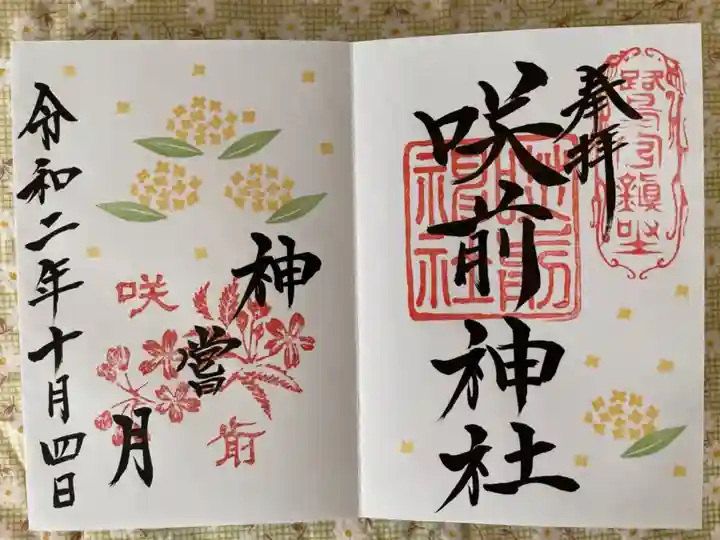 奉拝
咲前神社
咲前神社
神嘗月
咲前
令和二年十月四日